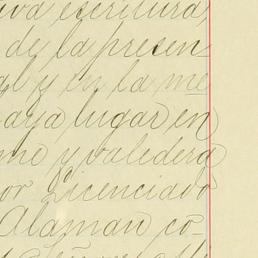 iva escritura,
de la presen
al y en la me
aya lugar en
mo y valedera
or Licenciado
Alaman co-